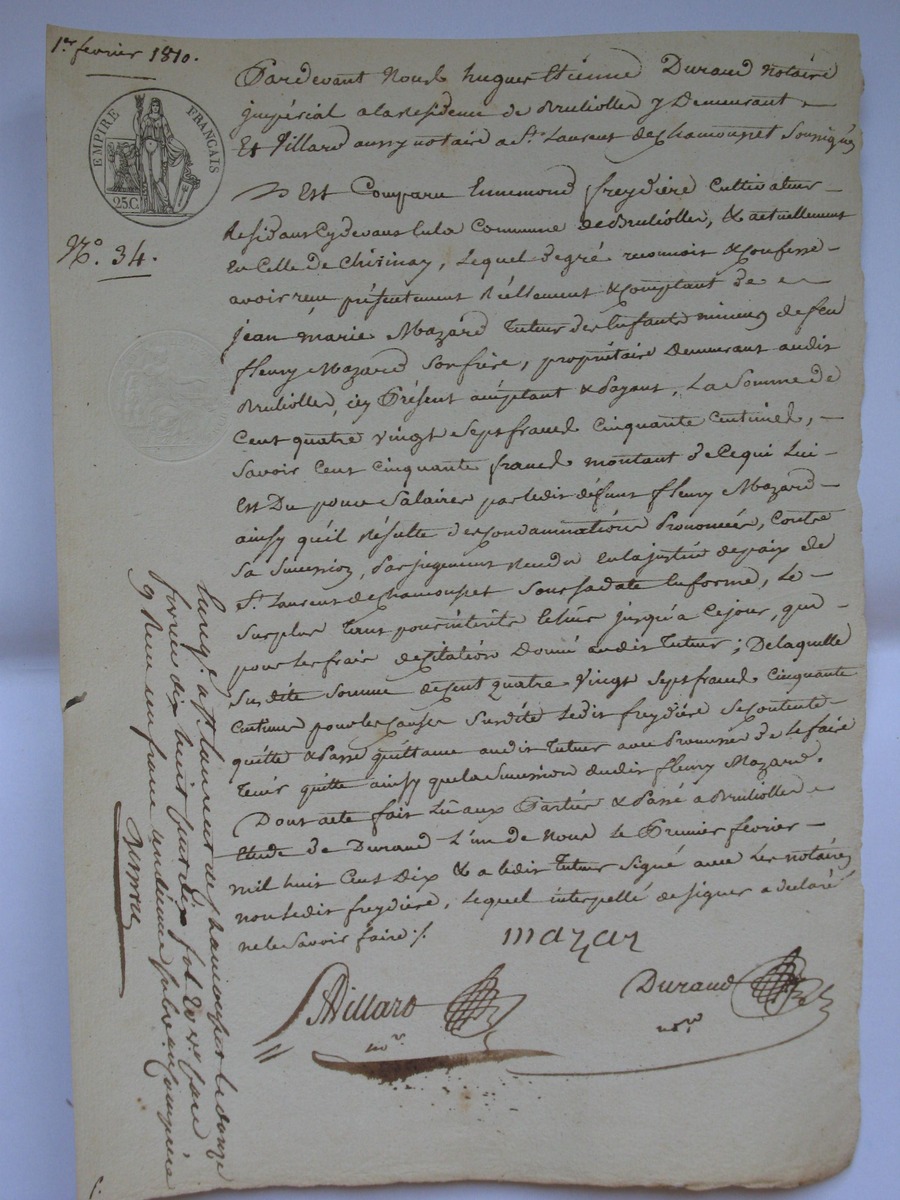 1er février 1810.
EMPIRE FRANÇAIS
25C
No. 34.
Pardevant Nous hugues Etienne Durand Notaire
impérial a la residence de Brullioles y Demeurant
Et Villard aussy notaire a St. Laurent de Chamousset Soussignés
Est Comparu Ennemond freydière Cultivateur
Residant Cydevant en la Commune de Brullioles, & actuellement
En Celle de Chirinay, Lequel de gré reconnoit & Confesse
avoir reçu présentement Réellement & Comptant de
jean marie Mazard Tuteur des Enfants mineurs de feu
fleury Mazard Son frère, propriétaire Demeurant audit
Brullioles, icy Présent acceptant & Payant, La Somme de
Cent quatre Vingt Sept francs Cinquante Centimes,
Savoir Cent Cinquante francs montant de Ce qui Lui
Est Du pour Salaires par ledit défunt fleury Mazard
ainsy qu'il Résulte des Condamnations Prononcées, Contre
Sa Succession, Par jugement Rendu En la justice de paix de
St. Laurent de Chamousset Sous Sa date En forme, Le
Surplus Tant pour intérêts Echus jusqu'à Ce jour, que
pour les frais de Citation Donné audit Tuteur; De laquelle
Susdite Somme de Cent quatre Vingt Sept francs Cinquante
Centimes pour les Causes Susdites Ledit freydière Se Contente
quitte & Passe quittance audit Tuteur avec Promesse de Le faire
Tenir quitte ainsy que la Succession dudit fleury Mazard.
Dont acte fait Lu aux Parties & Passé a Brullioles
Etude de Durand L'un de Nous le Premier février
mil huit Cent Dix & a ledit Tuteur Signé avec Les Notaires
non Ledit freydière, Lequel interpellé de signer a déclaré
ne le Savoir faire ./.
mazar
Villard
Durand
nore
nore
Enregé. a St. Laurent de Chamousset le douze
février dix huit cent dix fol. 20 vo. Case
9 Reçu un franc un décime subvention comprise